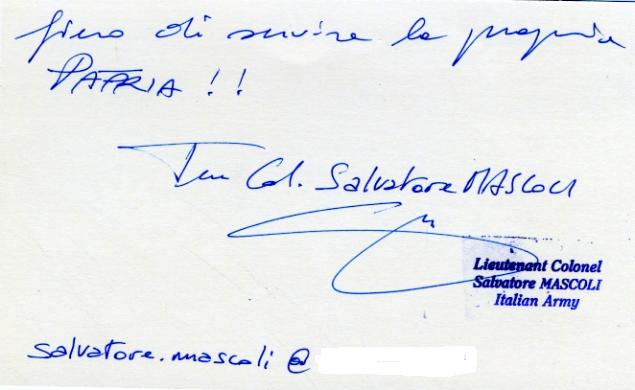 fiero di servire la propria
PATRIA!!
Ten Col. Salvatore MASCOLI
Lieutenant Colonel
Salvatore MASCOLI
Italian Army
salvatore.mascoli @